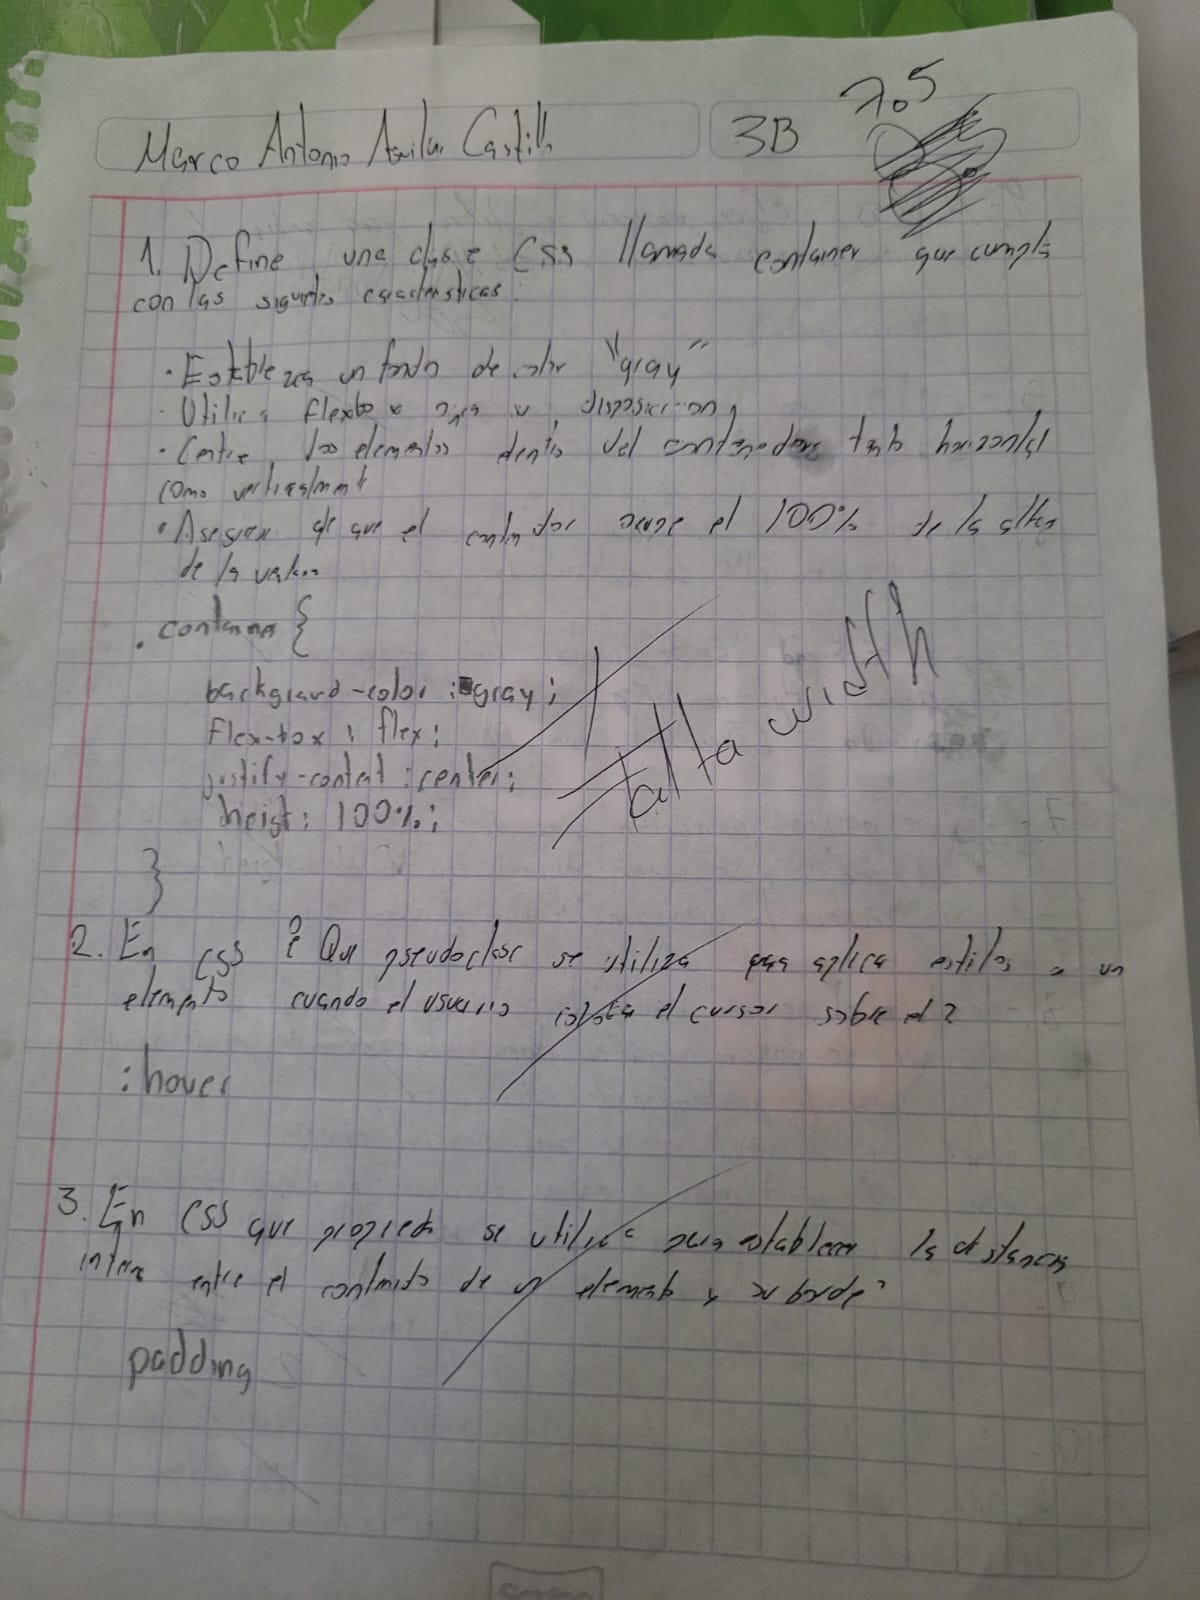 7.5
Marco Antonio Aguilar Castillo 3B
1. Define una clase CSS llamada container que cumpla
con las siguients caracteristicas:
· Establezca un fondo de color "gray"
· Utilice flexbox para su disposicion
· Centre los elementos dentro del contenedor tanto horizontal
como verticalment
· Asegure de que el contendor ocupe el 100% de la altura
de la
.container {
background-color : gray;
Flex-box : flex;
justify-content : center;
heigt: 100%;
falta width
}
2. En CSS ¿ Que pseudoclase se utiliza para aplicar estilos a un
elemento cuando el usuario coloca el cursor sobre el?
:hover
3. En CSS que propieda se utiliza para establecer la distancia
interna entre el contenido de un elemento y su borde?
padding
Scribe